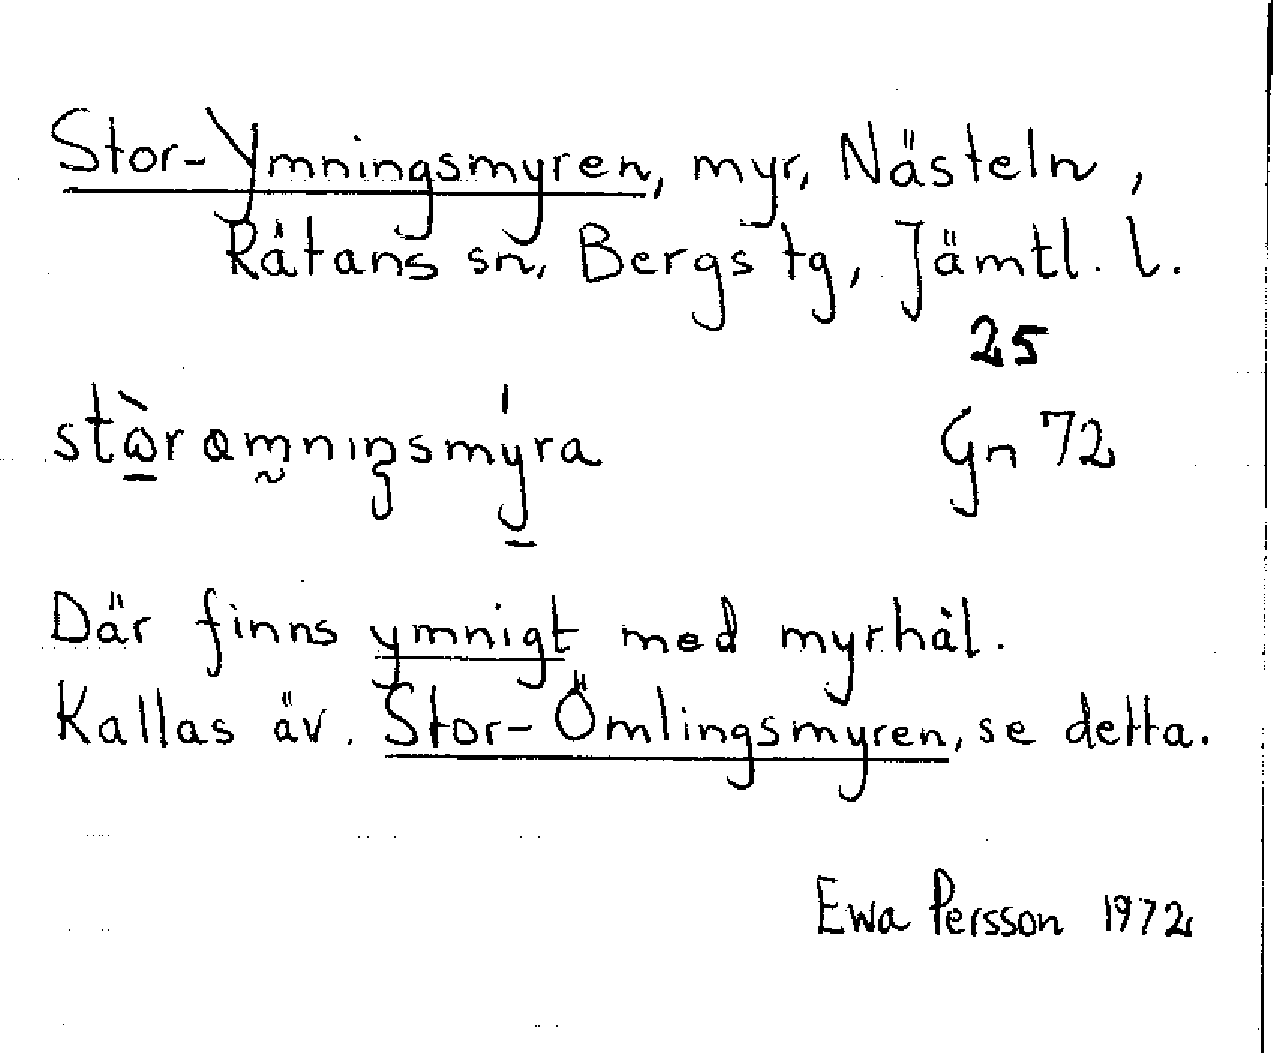 Stor-Ymningsmyren, myr, Nästeln,
Råtans sn, Bergs tg, Jämtl. l.
25
Gn 72
Där finns ymnigt med myrhål.
Kallas äv. Stor-Ömlingsmyren, se detta.
Ewa Persson 1972